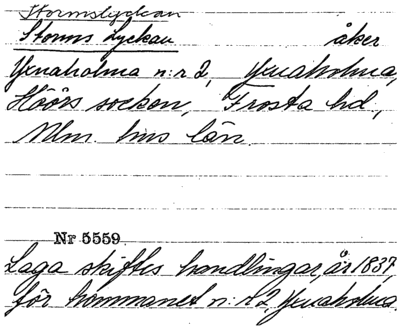 Stormslyckan
Storms Lyckan åker
Ynaholma n:r 2, Ynaholma,
Höörs socken, Frosta hd,
Mlm. hus län.
Nr 5559
Laga skiftes handlingar, år 1837,
för hemmanet n:r 2, Ynaholma.